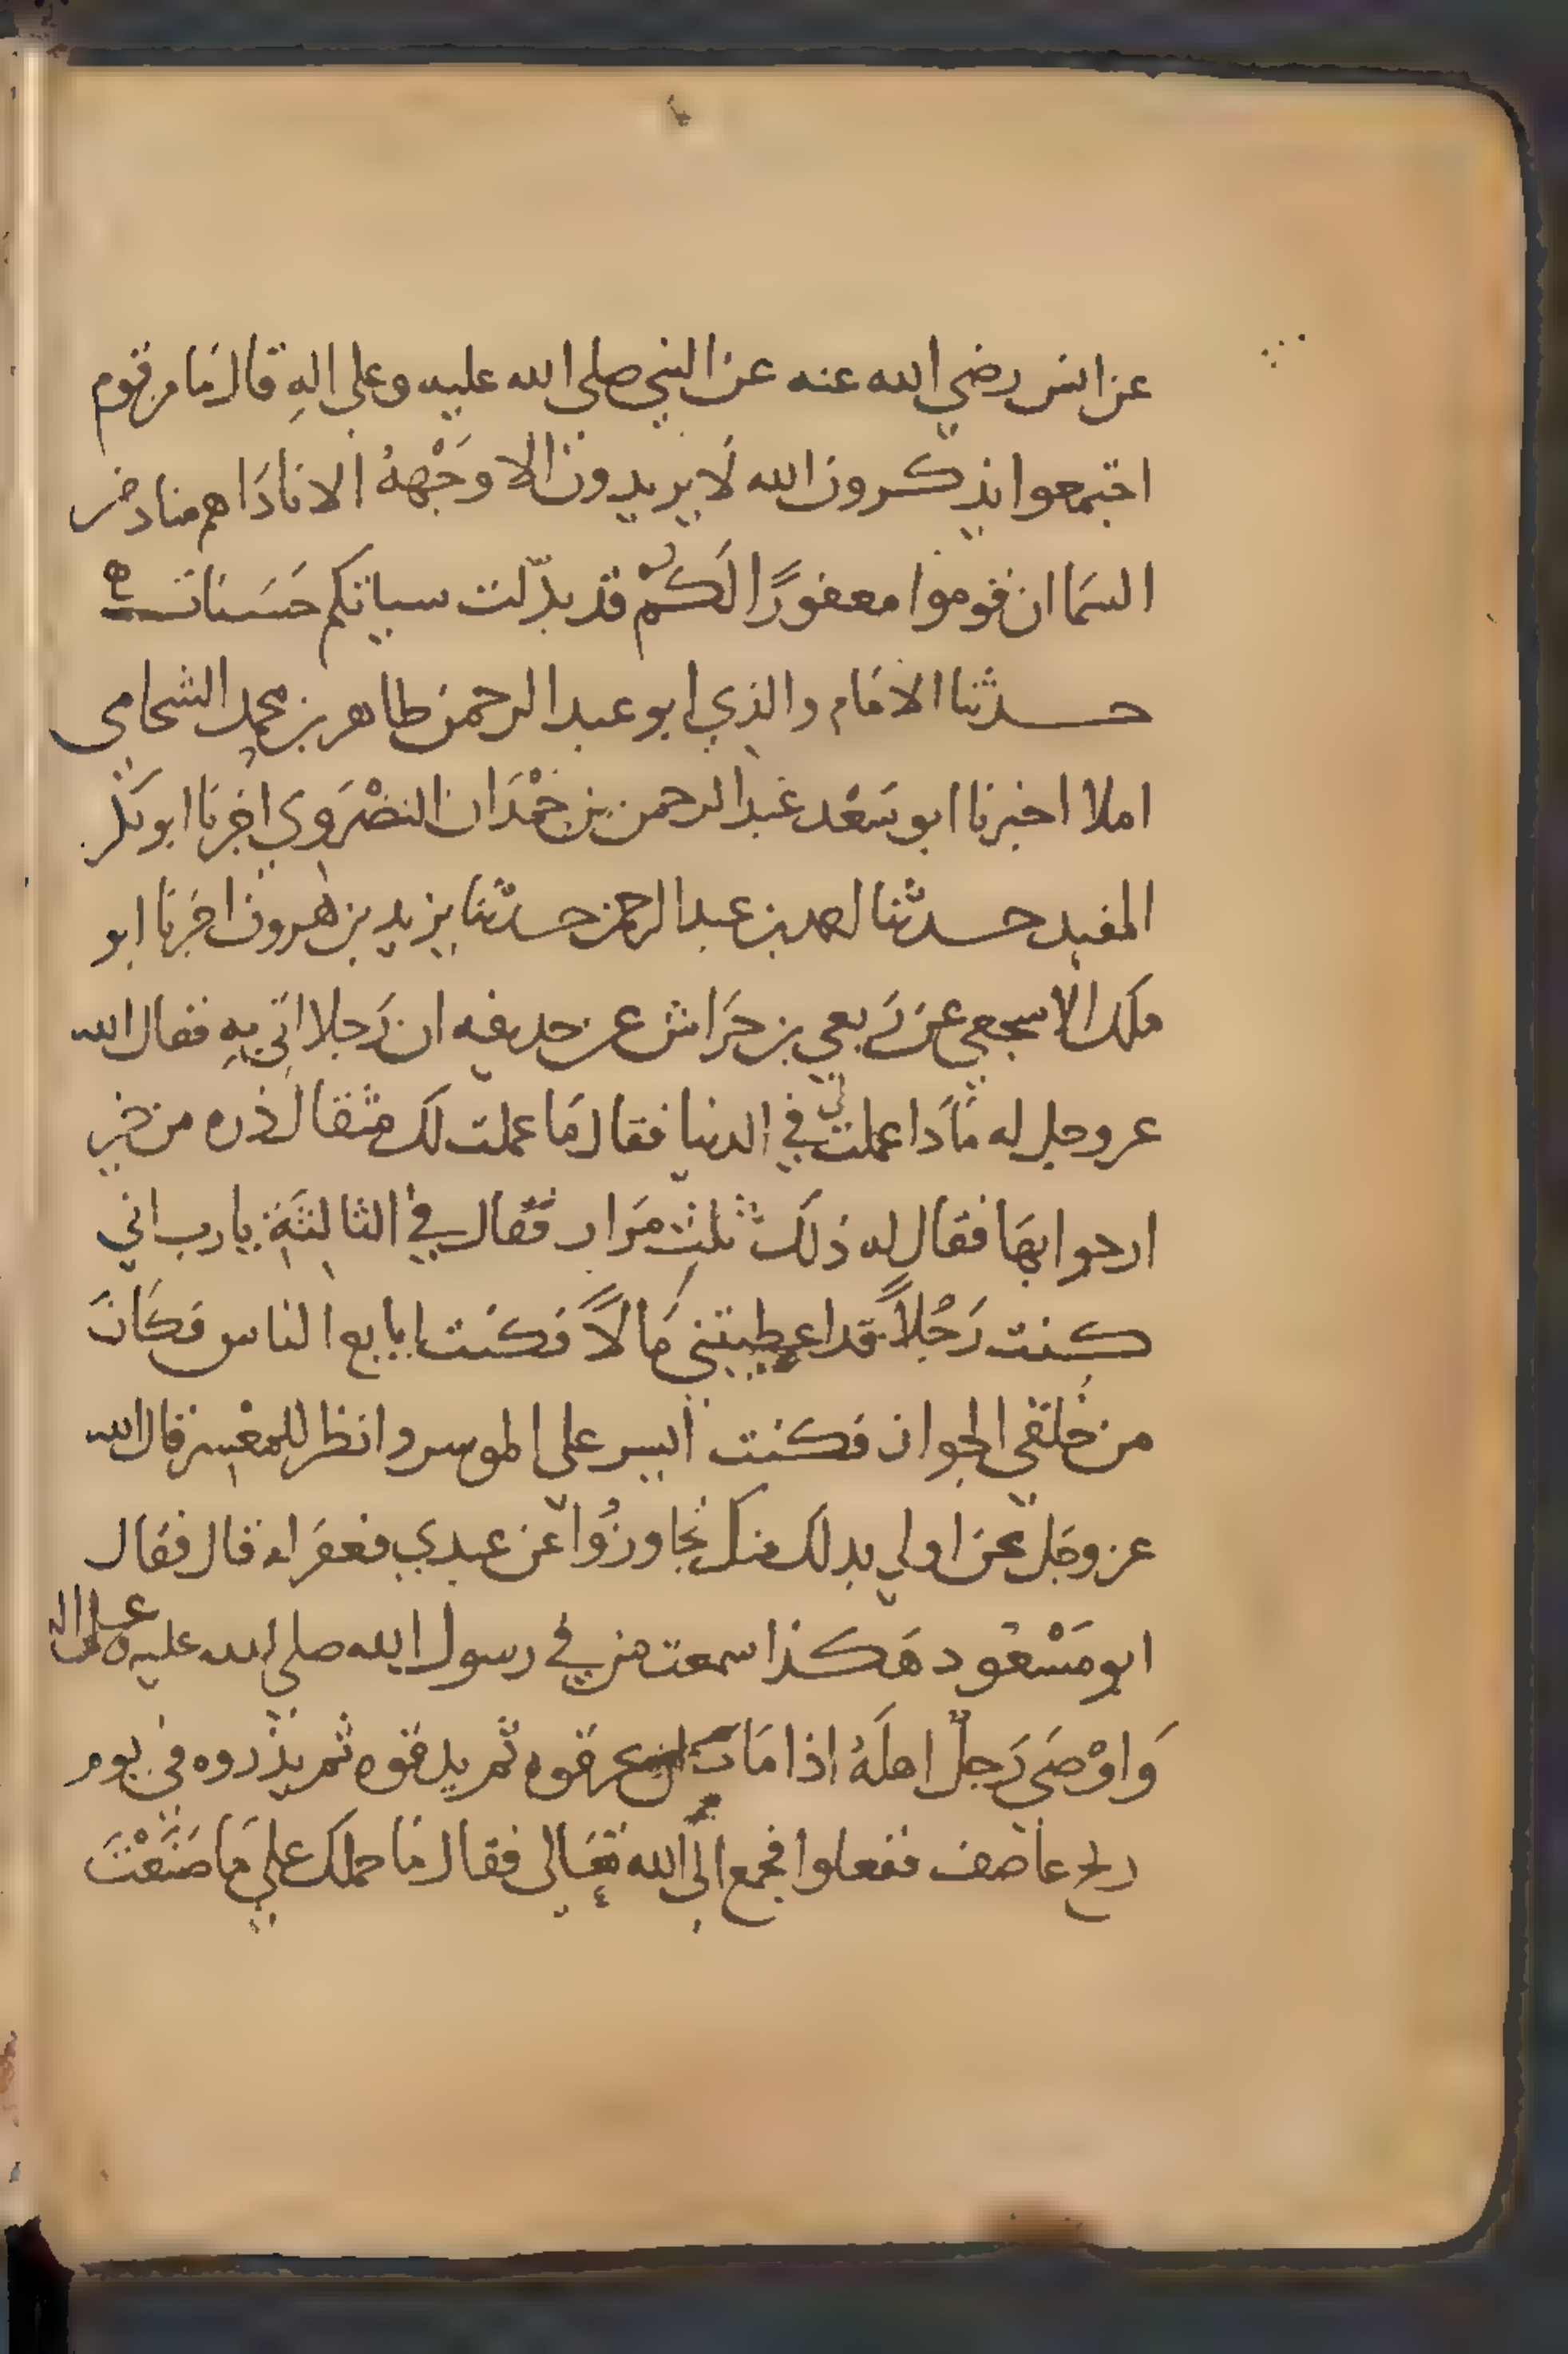 عن انس رضي الله عنه عن النبي صلى الله عليه وعلى الهِ قال مَا من قوم
اجتمعوا يذكرون الله لَا يريدون الا وجْههُ الا نادَاهم مناد من
السمَا ان قوموا مغفورًا لكم قد بدّلت سياتكم حسَنات
حدثنا الامَام والدي ابو عبد الرحمن طاهر بن محمد الشحامي
املا اخبرنا ابو سَعْد عبد الرحمن بن حَمْدَان النضْرَوي اخبرنا ابو بَكر
المفيد حدثنا احمد بن عبد الرحمن حدثنا يزيد بن هرون اخبرنا ابو
ملك الاشجعي عن رِبعي بن حرَاش عن حديفه ان رَجلا اتي بهِ فقال الله
عز وجل له مَاذَا عملت لي في الدنيا فقال مَا عملت لك مثقال ذره من خير
ارجوا بهَا فقال له ذلك ثلث مرَار فقال في الثالثَةِ يا رب اني
كنت رَجُلاً قد اعطيتني مَالاً فكنت ابايع الناس فكَانَ
من خلقي الجواز فكنت ايسر على الموسر وانظر المعْسر قال الله
عز وجَل نحن اولي بدلك منك تجَاوزُوا عن عبدي فغفرَ له قال فقال
ابو مَسْعُود هَكذا سمعت من في رسول الله صلى الله عليه وعلى اله
وَاوْصَى رَجلٌ اهلَهُ اذا مَات ان يحرقوه ثم يدقوه ثم يذروه في يوم
ريح عاصف ففعلوا فجمع الي الله تعَالى فقال مَا حملك علي مَا صَنَعْتَ